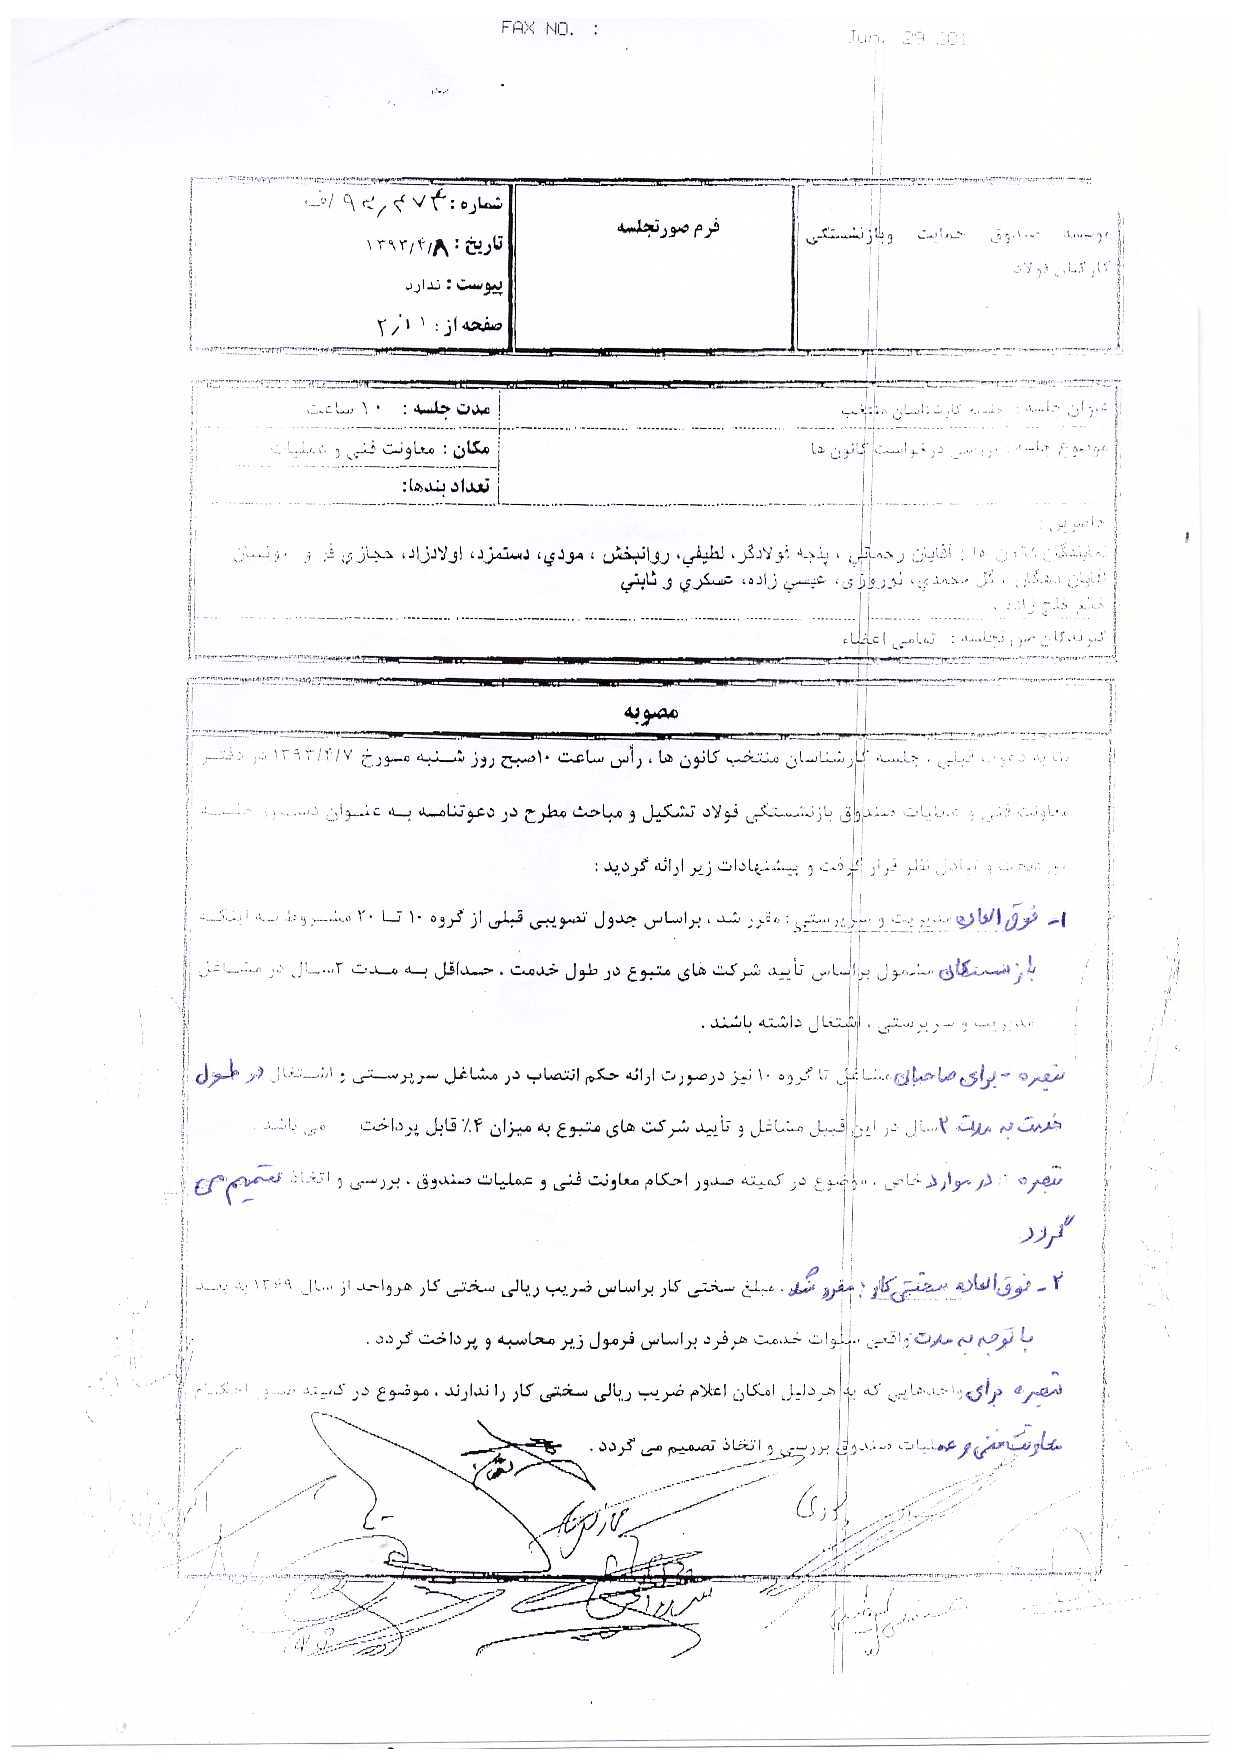 FAX NO. :
Jun. 29 201
موسسه صندوق حمایت وبازنشستگی
کارکنان فولاد
فرم صورتجلسه
شماره :
تاریخ : ۱۳۹۳/۴/۸
پیوست : ندارد
صفحه از : ۲/۱
عنوان جلسه : جلسه کارشناسان منتخب
مدت جلسه : ۱۰ ساعت
موضوع جلسه : بررسی درخواست کانون ها
مکان : معاونت فنی و عملیات
تعداد بندها:
حاضرین :
نمایندگان کانون ها : آقایان رحمانی ، پنجه فولادگر، لطیفي، روانبخش ، مودي، دستمزد، اولادزاد، حجازي فر و
آقایان دهگان ، گل محمدي، نوروزي، عیسي زاده، عسکري و ثابتي
خانم فتح زاده .
گیرندگان صورتجلسه : تمامی اعضاء
مصوبه
بنا به دعوت قبلی ، جلسه کارشناسان منتخب کانون ها ، رأس ساعت ۱۰صبح روز شنبه مورخ ۱۳۹۳/۴/۷ در دفتر
معاونت فنی و عملیات صندوق بازنشستگی فولاد تشکیل و مباحث مطرح در دعوتنامه به عنوان دستور جلسه
مورد بحث و تبادل نظر قرار گرفت و پیشنهادات زیر ارائه گردید :
۱- فوق العاده مدیریت و سرپرستی : مقرر شد ، براساس جدول تصویبی قبلی از گروه ۱۰ تا ۲۰ مشروط به اینکه
بازنشستگان مشمول براساس تأیید شرکت های متبوع در طول خدمت ، حداقل به مدت ۲سال در مشاغل
مدیریت و سرپرستی ، اشتغال داشته باشند .
تبصره - برای صاحبان مشاغل تا گروه ۱۰ نیز درصورت ارائه حکم انتصاب در مشاغل سرپرستی و اشتغال در طول
خدمت به مدت ۲سال در این قبیل مشاغل و تأیید شرکت های متبوع به میزان ۴٪ قابل پرداخت می باشد .
تبصره : در موارد خاص ، موضوع در کمیته صدور احکام معاونت فنی و عملیات صندوق ، بررسی و اتخاذ تصمیم می
گردد
۲- فوق العاده سختی کار : مقرر شد ، مبلغ سختی کار براساس ضریب ریالی سختی کار هرواحد از سال ۱۳۶۹ به بعد
با توجه به مدت واقعی سنوات خدمت هرفرد براساس فرمول زیر محاسبه و پرداخت گردد .
تبصره برای واحدهایی که به هردلیل امکان اعلام ضریب ریالی سختی کار را ندارند ، موضوع در کمیته صدور احکام
معاونت فنی و عملیات صندوق بررسی و اتخاذ تصمیم می گردد .